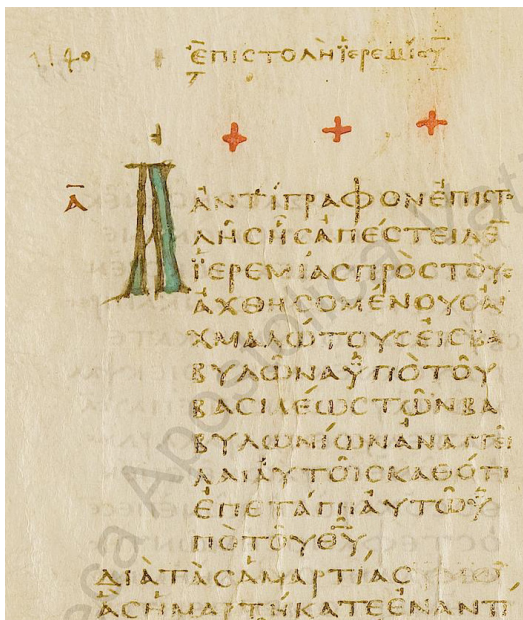 1140
ἘΠΙΣΤΟΛΗ ἸΕΡΕΜΙΟΥ
Α̅
ἈΝΤΙΓΡΑΦΟΝ ἘΠΙΣΤΟ
ΛΗΣ ἯΣ ἈΠΕΣΤΕΙΛΕ
ἸΕΡΕΜΙΑΣ ΠΡΟΣ ΤΟΥΣ
ἈΧΘΗΣΟΜΕΝΟΥΣ ΑΙ
ΧΜΑΛΩΤΟΥΣ ΕΙΣ ΒΑ
ΒΥΛΩΝΑ ΥΠΟ ΤΟΥ
ΒΑΣΙΛΕΩΣ ΤΩΝ ΒΑ
ΒΥΛΩΝΙΩΝ ΑΝΑΓΓΕΙ
ΛΑΙ ΑΥΤΟΙΣ ΚΑΘΟΤΙ
ἘΠΕΤΑΓΗ ΑΥΤΩ Υ
ΠΟ ΤΟΥ Θ̅Υ̅
ΔΙΑ ΤΑΣ ΑΜΑΡΤΙΑΣ
ΑΣ ΗΜΑΡΤΗΚΑΤΕ ΕΝΑΝΤΙ